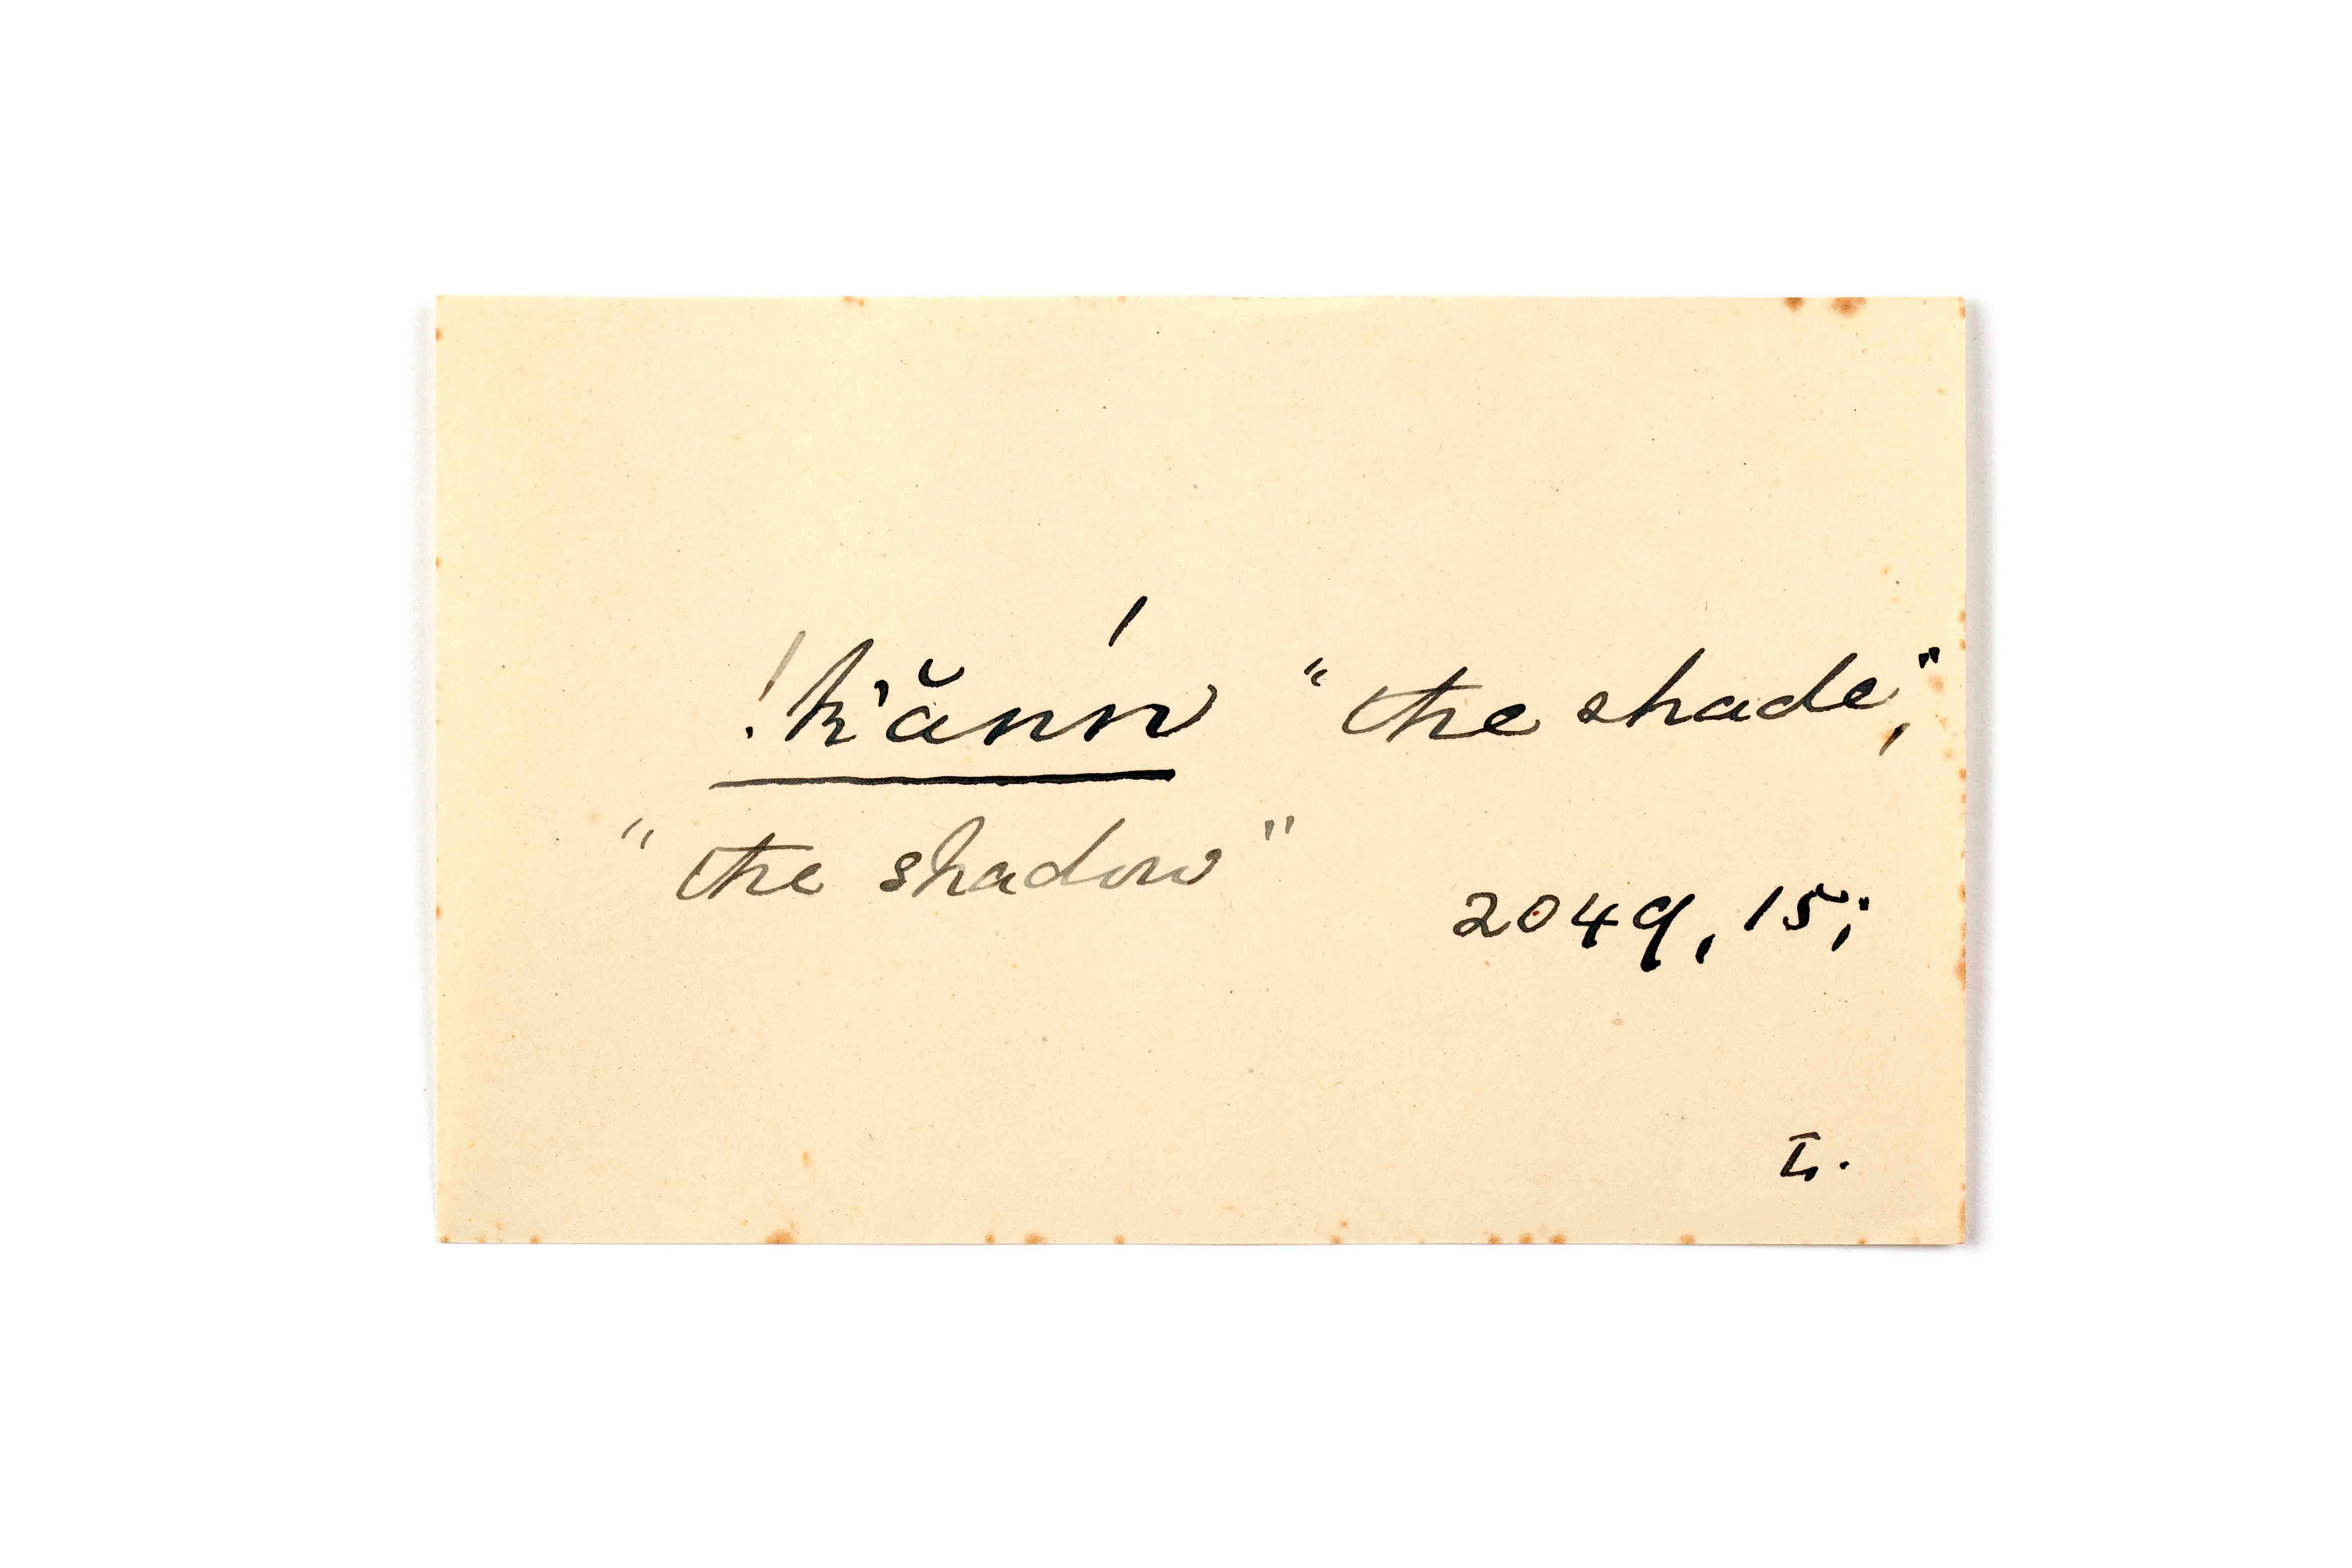 !k'ănń "the shade",
"the shadow"
2049, 15;
L.